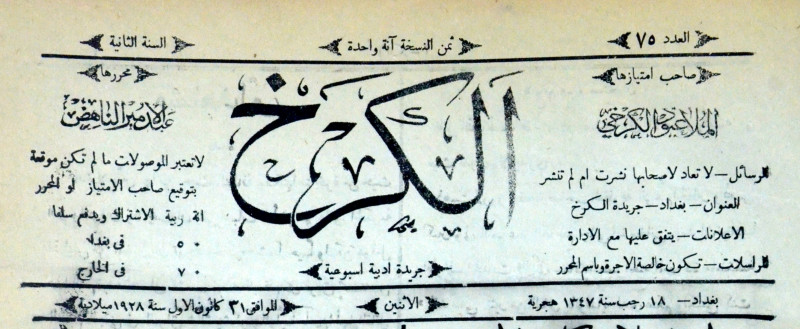 العدد ٧٥
ثمن النسخة آنة واحدة
السنة الثانية
صاحب امتيازها
الملا عبود الكرخي
الكرخ
محررها
عبد الامير الناهض
الرسائل — لا تعاد لاصحابها نشرت ام لم تنشر
العنوان — بغداد — جريدة الكرخ
الاعلانات — يتفق عليها مع الادارة
المراسلات — تكون خالصة الاجرة وباسم المحرر
جريدة ادبية اسبوعية
لا تعتبر الوصولات ما لم تكن موقعة
بتوقيع صاحب الامتياز او المحرر
ربية الاشتراك ويدفع سلفا
٥٠ في بغداد
٧٠ في الخارج
بغداد — ١٨ رجب سنة ١٣٤٧ هجرية
الاثنين
الموافق ٣١ كانون الاول سنة ١٩٢٨ ميلادية